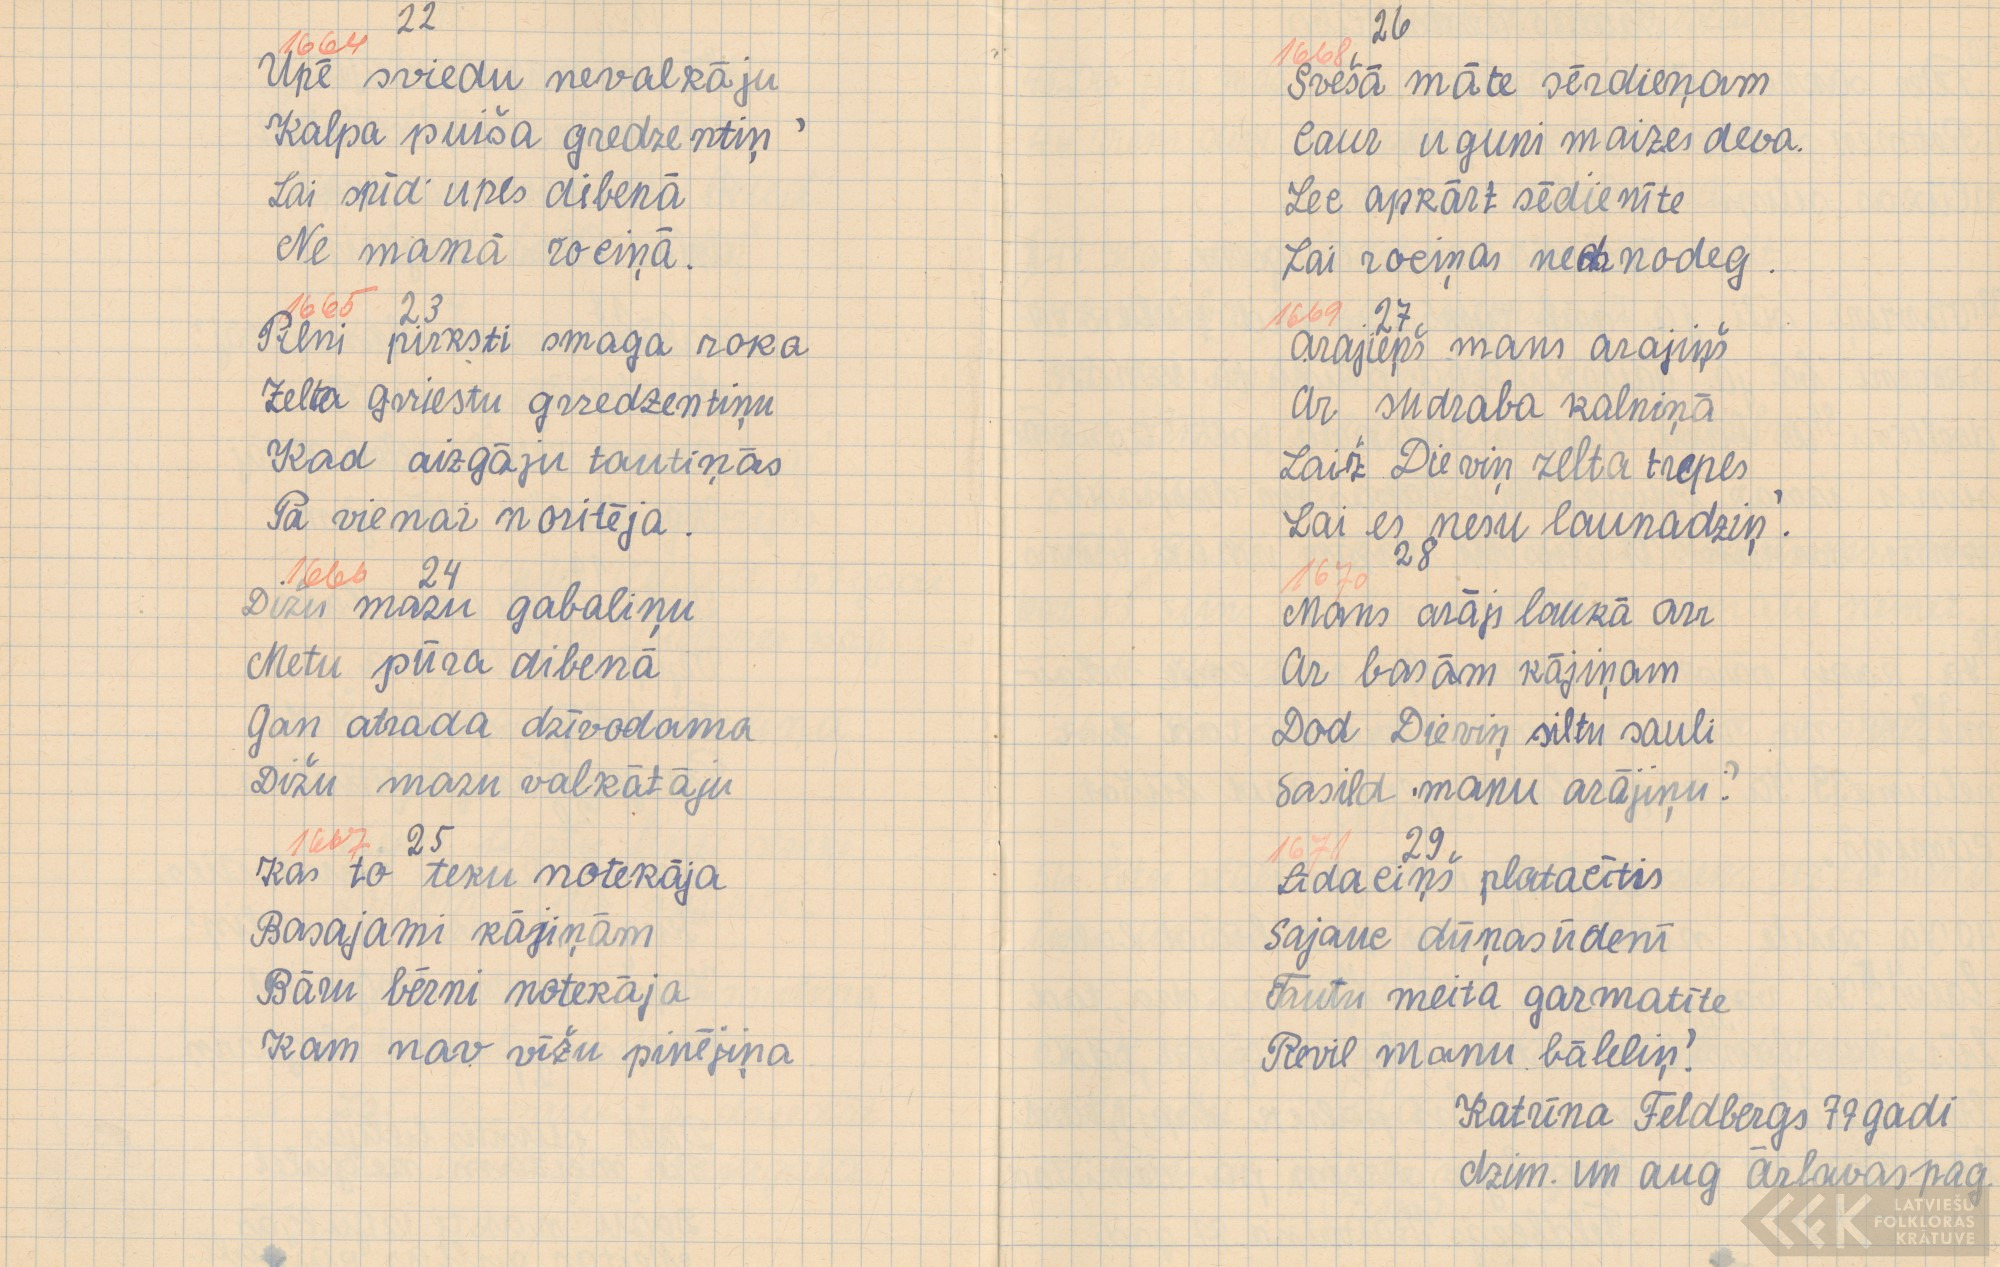 22
1664
Upē sviedu nevalkāju
Kalpa puiša gredzentiņ'
Lai spīd upes dibenā
Ne manā rociņā.
1665 23
Pilni pirksti smaga roka
Zelta griestu grredzentiņu
Kad aizgāju tautiņās
Pa vienai noritēja.
1666 24
Dižu mazu gabaliņu
Metu pūra dibenā
Gan atrada dzīvodama
Dižu mazu valkātāju
1667 25
Kas to teku notekāja
Basajami kājiņām
Bāru bērni notekāja
Kam nav vīžu pinējiņa
26
1668
Svešā māte sērdieņam
Caur uguni maizes deva.
Lec apkārt sēdienīte
Lai rociņas nenodeg.
1669 27
Arajieņš mans arajiņš
Ar sudraba kalniņā
Laiž Dieviņ zelta trepes
Lai es nesu launadziņ'.
28
1670
Mans arājs laukā arr
Ar basām kājiņam
Dod Dieviņ siltu sauli
Sasild manu arājiņu?
1671 29
Līdaciņš platacītis
Sajauc dūņas ūdenī
Tautu meita garmatīte
Pievil manu bāleliņ'!
Katrīna Feldbergs 79 gadi
dzim. un aug Ārlavas pag.
LATVIEŠU
FOLKLORAS
KRĀTUVE